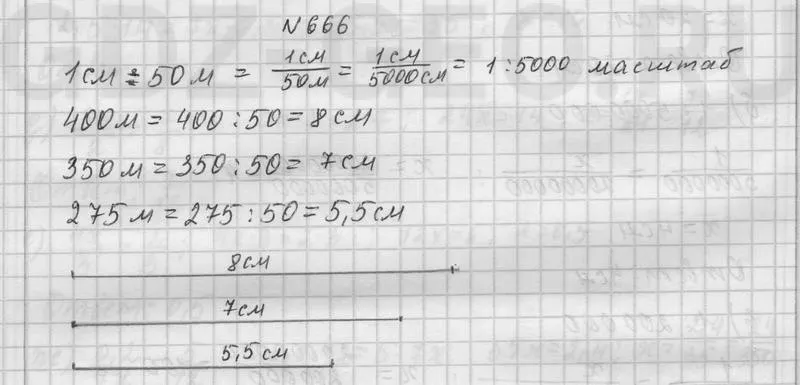 N 666
1 см : 50 м = 1 см/50 м = 1 см/5000 см = 1 : 5000 масштаб
400 м = 400 : 50 = 8 см
350 м = 350 : 50 = 7 см
275 м = 275 : 50 = 5,5 см
8 см
7 см
5,5 см